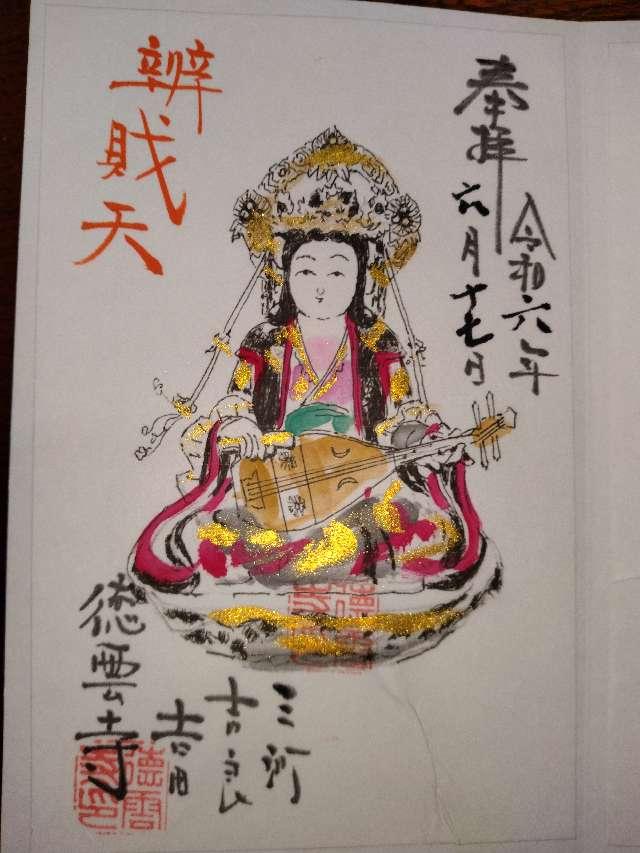 奉拝
令和六年
六月十七日
辨戝天
三河
吉良
吉田
徳雲寺